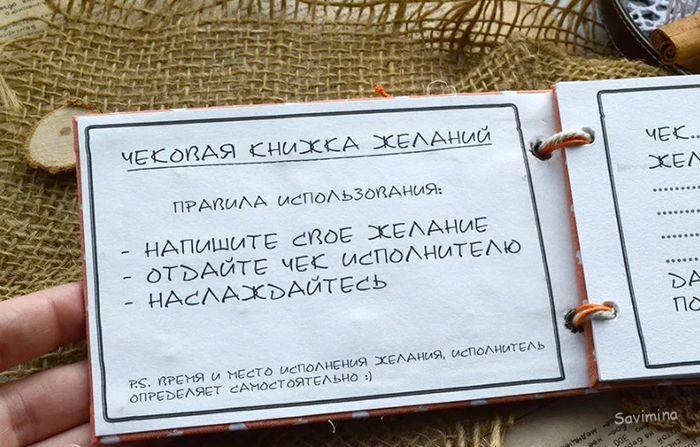 ЧЕКОВАЯ КНИЖКА ЖЕЛАНИЙ
ПРАВИЛА ИСПОЛЬЗОВАНИЯ:
- НАПИШИТЕ СВОЕ ЖЕЛАНИЕ
- ОТДАЙТЕ ЧЕК ИСПОЛНИТЕЛЮ
- НАСЛАЖДАЙТЕСЬ
P.S. ВРЕМЯ И МЕСТО ИСПОЛНЕНИЯ ЖЕЛАНИЯ, ИСПОЛНИТЕЛЬ
ОПРЕДЕЛЯЕТ САМОСТОЯТЕЛЬНО :)
ЧЕК..
ЖЕЛ
ДА
ПО
Savimina